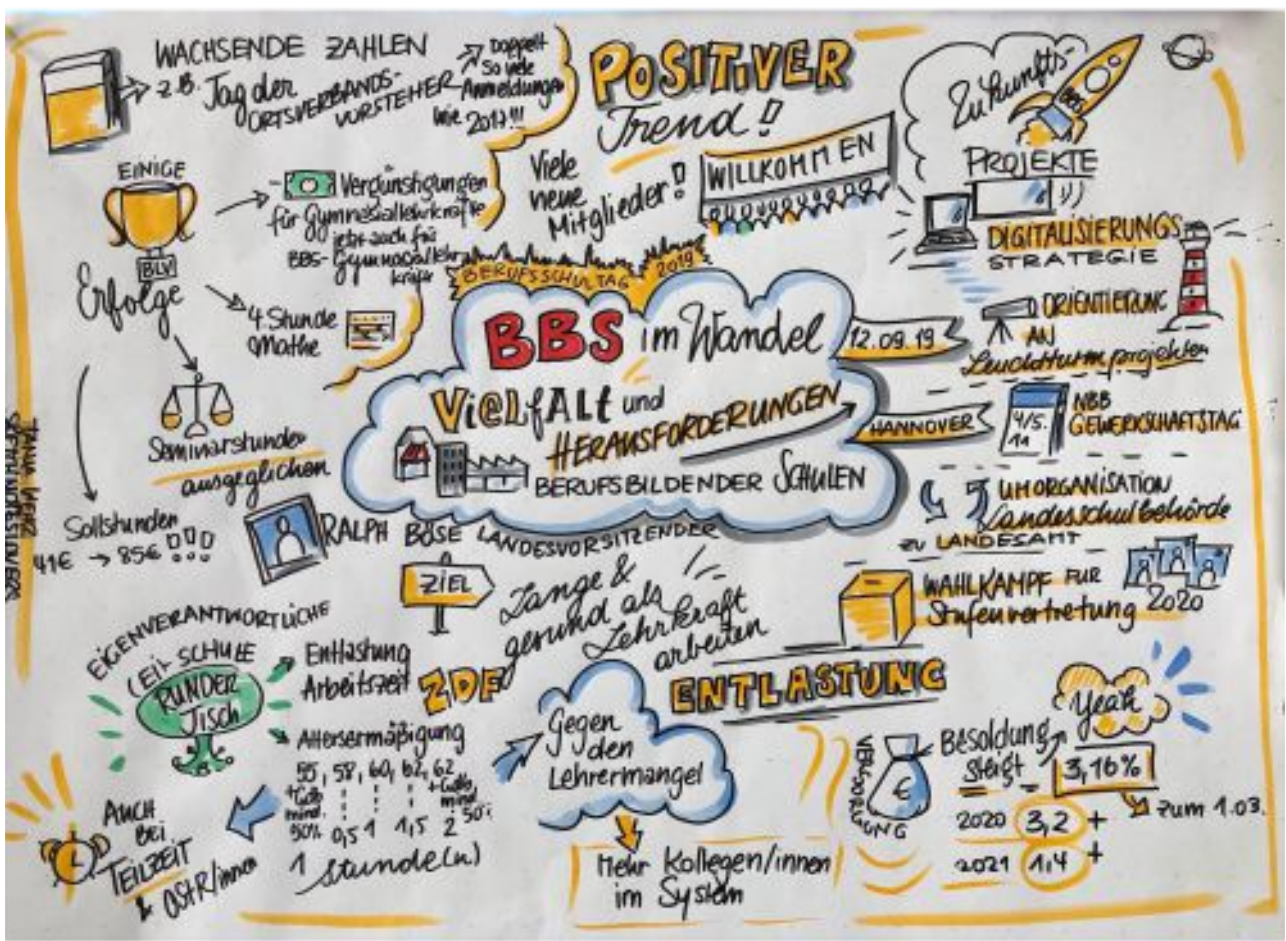 WACHSENDE ZAHLEN
z.B. Tag der
ORTSVERBANDS-
VORSTEHER
Doppelt
so viele
Anmeldungen
wie 2017!!!
POSITIVER
Trend!
Viele
neue
Mitglieder!
WILLKOMMEN
Zukunfts-
BBS
PROJEKTE
DIGITALISIERUNGS
STRATEGIE
ORIENTIERUNG
AN
Leuchtturmprojekten
4/5.
11
NBB
GEWERKSCHAFTSTAG
UMORGANISATION
Landesschulbehörde
ZU LANDESAMT
WAHLKAMPF FÜR
Stufenvertretung
2020
EINIGE
BLV
Erfolge
Vergünstigungen
für Gymnasiallehrkräfte
jetzt auch für
BBS-Gymnasiallehr
kräfte
4. Stunde
Mathe
Seminarstunden
ausgeglichen
Sollstunden
41€ → 85€ !!!
BERUFSSCHULTAG 2019
BBS im Wandel
Vi@LfALt und
HERAUSFORDERUNGEN
BERUFSBILDENDER SCHULEN
12.09.19
HANNOVER
RALPH BÖSE LANDESVORSITZENDER
ZIEL
Lange &
gesund als
Lehrkraft
arbeiten
EIGENVERANTWORTLICHE
SCHULE
RUNDER
Tisch
Entlastung
Arbeitszeit
Altersermäßigung
55, 58, 60, 62, 62
+Gdb
mind.
50%
0,5
1
1,5
2
+Gdb
mind
50%
1 Stunde(n)
AUCH
BEI
TEILZEIT
OStR/innen
ZDF
Gegen
den
Lehrermangel
Mehr Kollegen/innen
im System
ENTLASTUNG
€
Besoldung
steigt
Yeah
3,16%
zum 1.03.
2020 3,2 +
2021 1,4 +